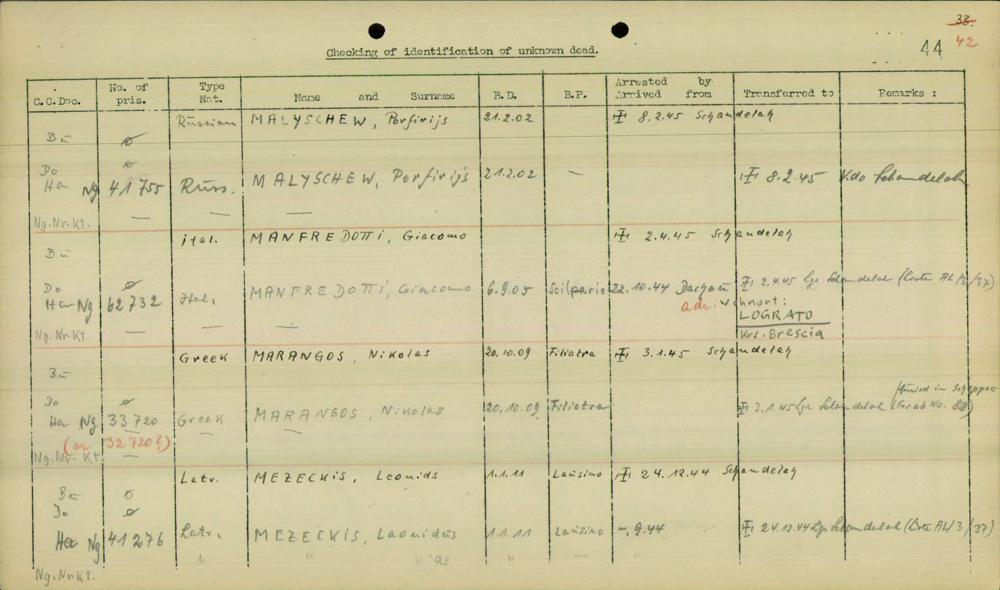 33
44 42
Checking of identification of unknown dead.
C.C.Doc. No. of pris. Type Nat. Name and Surname B.D. B.P. Arrested by Arrived from Transferred to Remarks :
Russian MALYSCHEW, Porfirijs 21.2.02 8.2.45 Schandelah
Bu ø
Do ø
Ha Ng 41755 Russ. MALYSCHEW, Porfirijs 21.2.02 — 8.2.45 Kdo Schandelah
Ng.Nr.Kt. — — —
ital. MANFREDOTTI, Giacomo 2.4.45 Schandelah
Bu
Do ø
Ha Ng 62732 Ital. MANFREDOTTI, Giacomo 6.9.05 Scilpario 22.10.44 Dachau 2.4.45 Lgr. Schandelah (Liste AL/3/37)
adr. Wohnort:
LOGRATO
Ng.Nr.Kt. — — — Krs. Brescia
Greek MARANGOS, Nikolas 20.10.09 Filiatra 3.1.45 Schandelah
Bu
Do ø
Ha Ng 33720 Greek MARANGOS, Nikolas 20,10.09 Filiatra 3.1.45 Lgr. Schandelah (Grab No.
(or 32720?)
Ng.Nr.Kt. —
Latv. MEZECKIS, Leonids 1.1.11 Lausino 24.12.44 Schandelah
Bu ø
Do ø
Ha Ng 41276 Latv. MEZECKIS, Leonidus 1.1.11 Lausino -.9.44 24.12.44 Lgr. Schandelah (Liste AL/3/37)
" " " as " "
Ng.Nr.Kt.